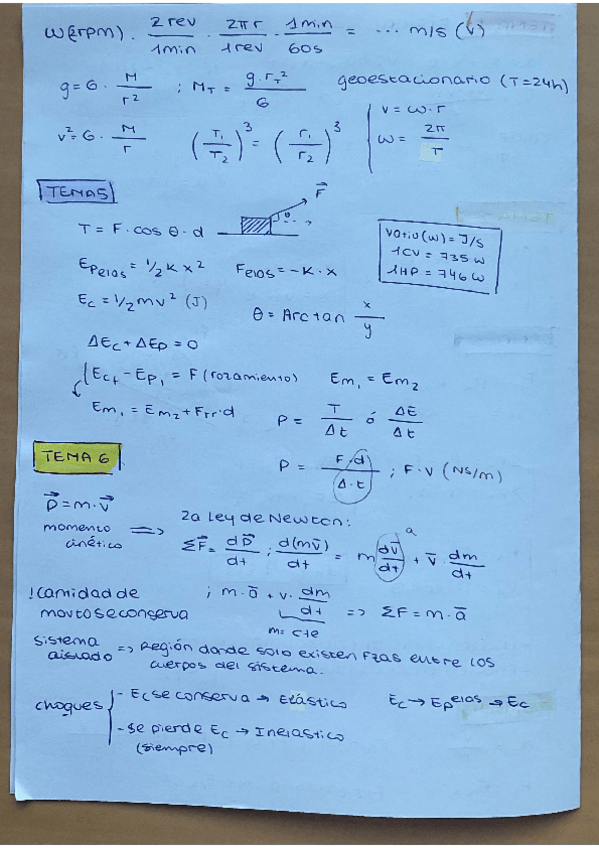 W(rpm) · 2 rev / 1 min · 2πr / 1 rev · 1 min / 60s = ... m/s (v)
g = G · M / r² ; M_T = g · r_T² / G geoestacionario (T=24h)
v² = G · M / r (T₁ / T₂)³ = (r₁ / r₂)³ v = ω · r
ω = 2π / T
TEMA 5
F⃗
θ
T = F · cos θ · d
Vatio (W) = J/s
1CV = 735 W
1HP = 746 W
Epelas = 1/2 K x² Felas = -K · x
Ec = 1/2 m v² (J) θ = Arctan x / y
ΔEc + ΔEp = 0
Ecf - Ep₁ = F (rozamiento) Em₁ = Em₂
Em₁ = Em₂ + Frr · d P = T / Δt ó ΔE / Δt
TEMA 6
P = F · d / Δ · t ; F · V (NS/m)
p⃗ = m · v⃗
momento cinético => 2a Ley de Newton:
ΣF⃗ = dp⃗ / dt ; d(mv̄) / dt = m dv̄ / dt + v̄ · dm / dt
a
! Camidad de ; m · ā + v · dm / dt => ΣF = m · ā
movto se conserva m = cte
sistema aislado => Región donde solo existen Fzas entre los
cuerpos del sistema.
choques - Ec se conserva → Elástico Ec → Ep elas → Ec
- se pierde Ec → Inelástico
(siempre)